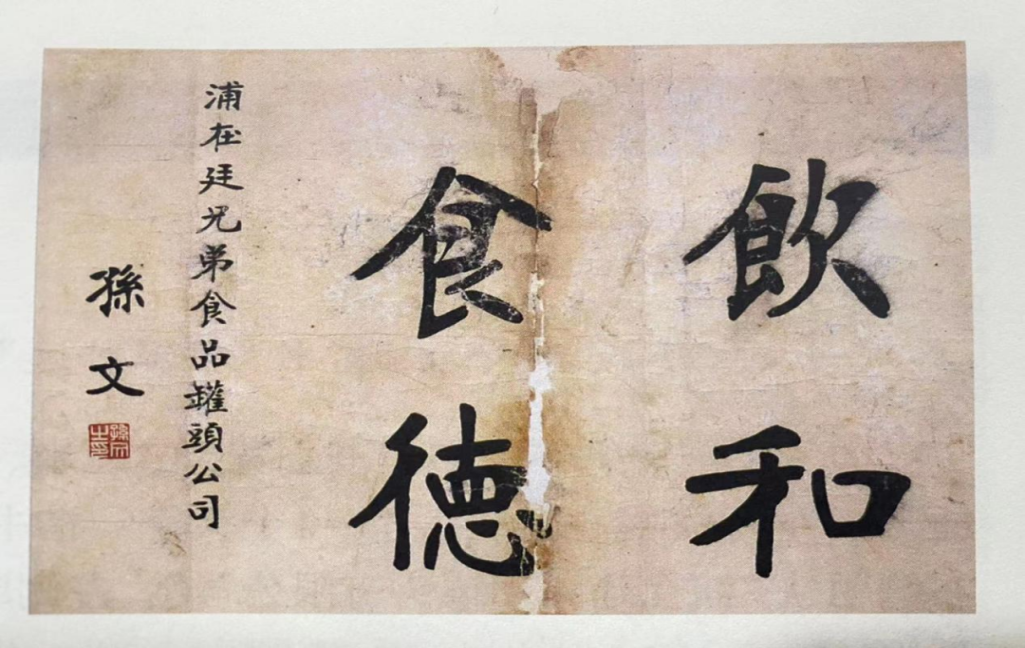 飲和
食德
浦在廷兄弟食品罐頭公司
孫文
孫文之印